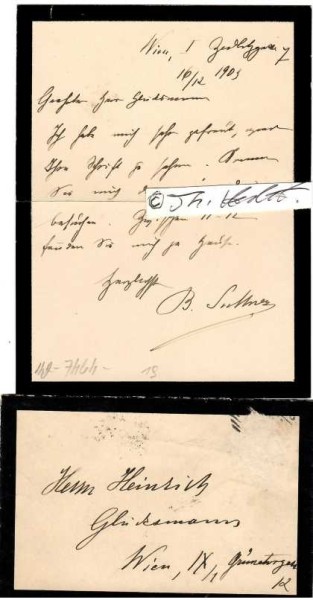 Wien, I Zedlitzgasse 7
16/12 1903
Geehrter Herr Glücksmann
Ich habe mich sehr gefreut, 
Ihre Schrift zu sehen.
Sie mich
besuchen. Zwischen 11-12
finden Sie mich zu Hause.
Herzlichst
B. Suttner
49- 7464- 19
Herrn Heinrich
Glücksmann
Wien, IX/1
12